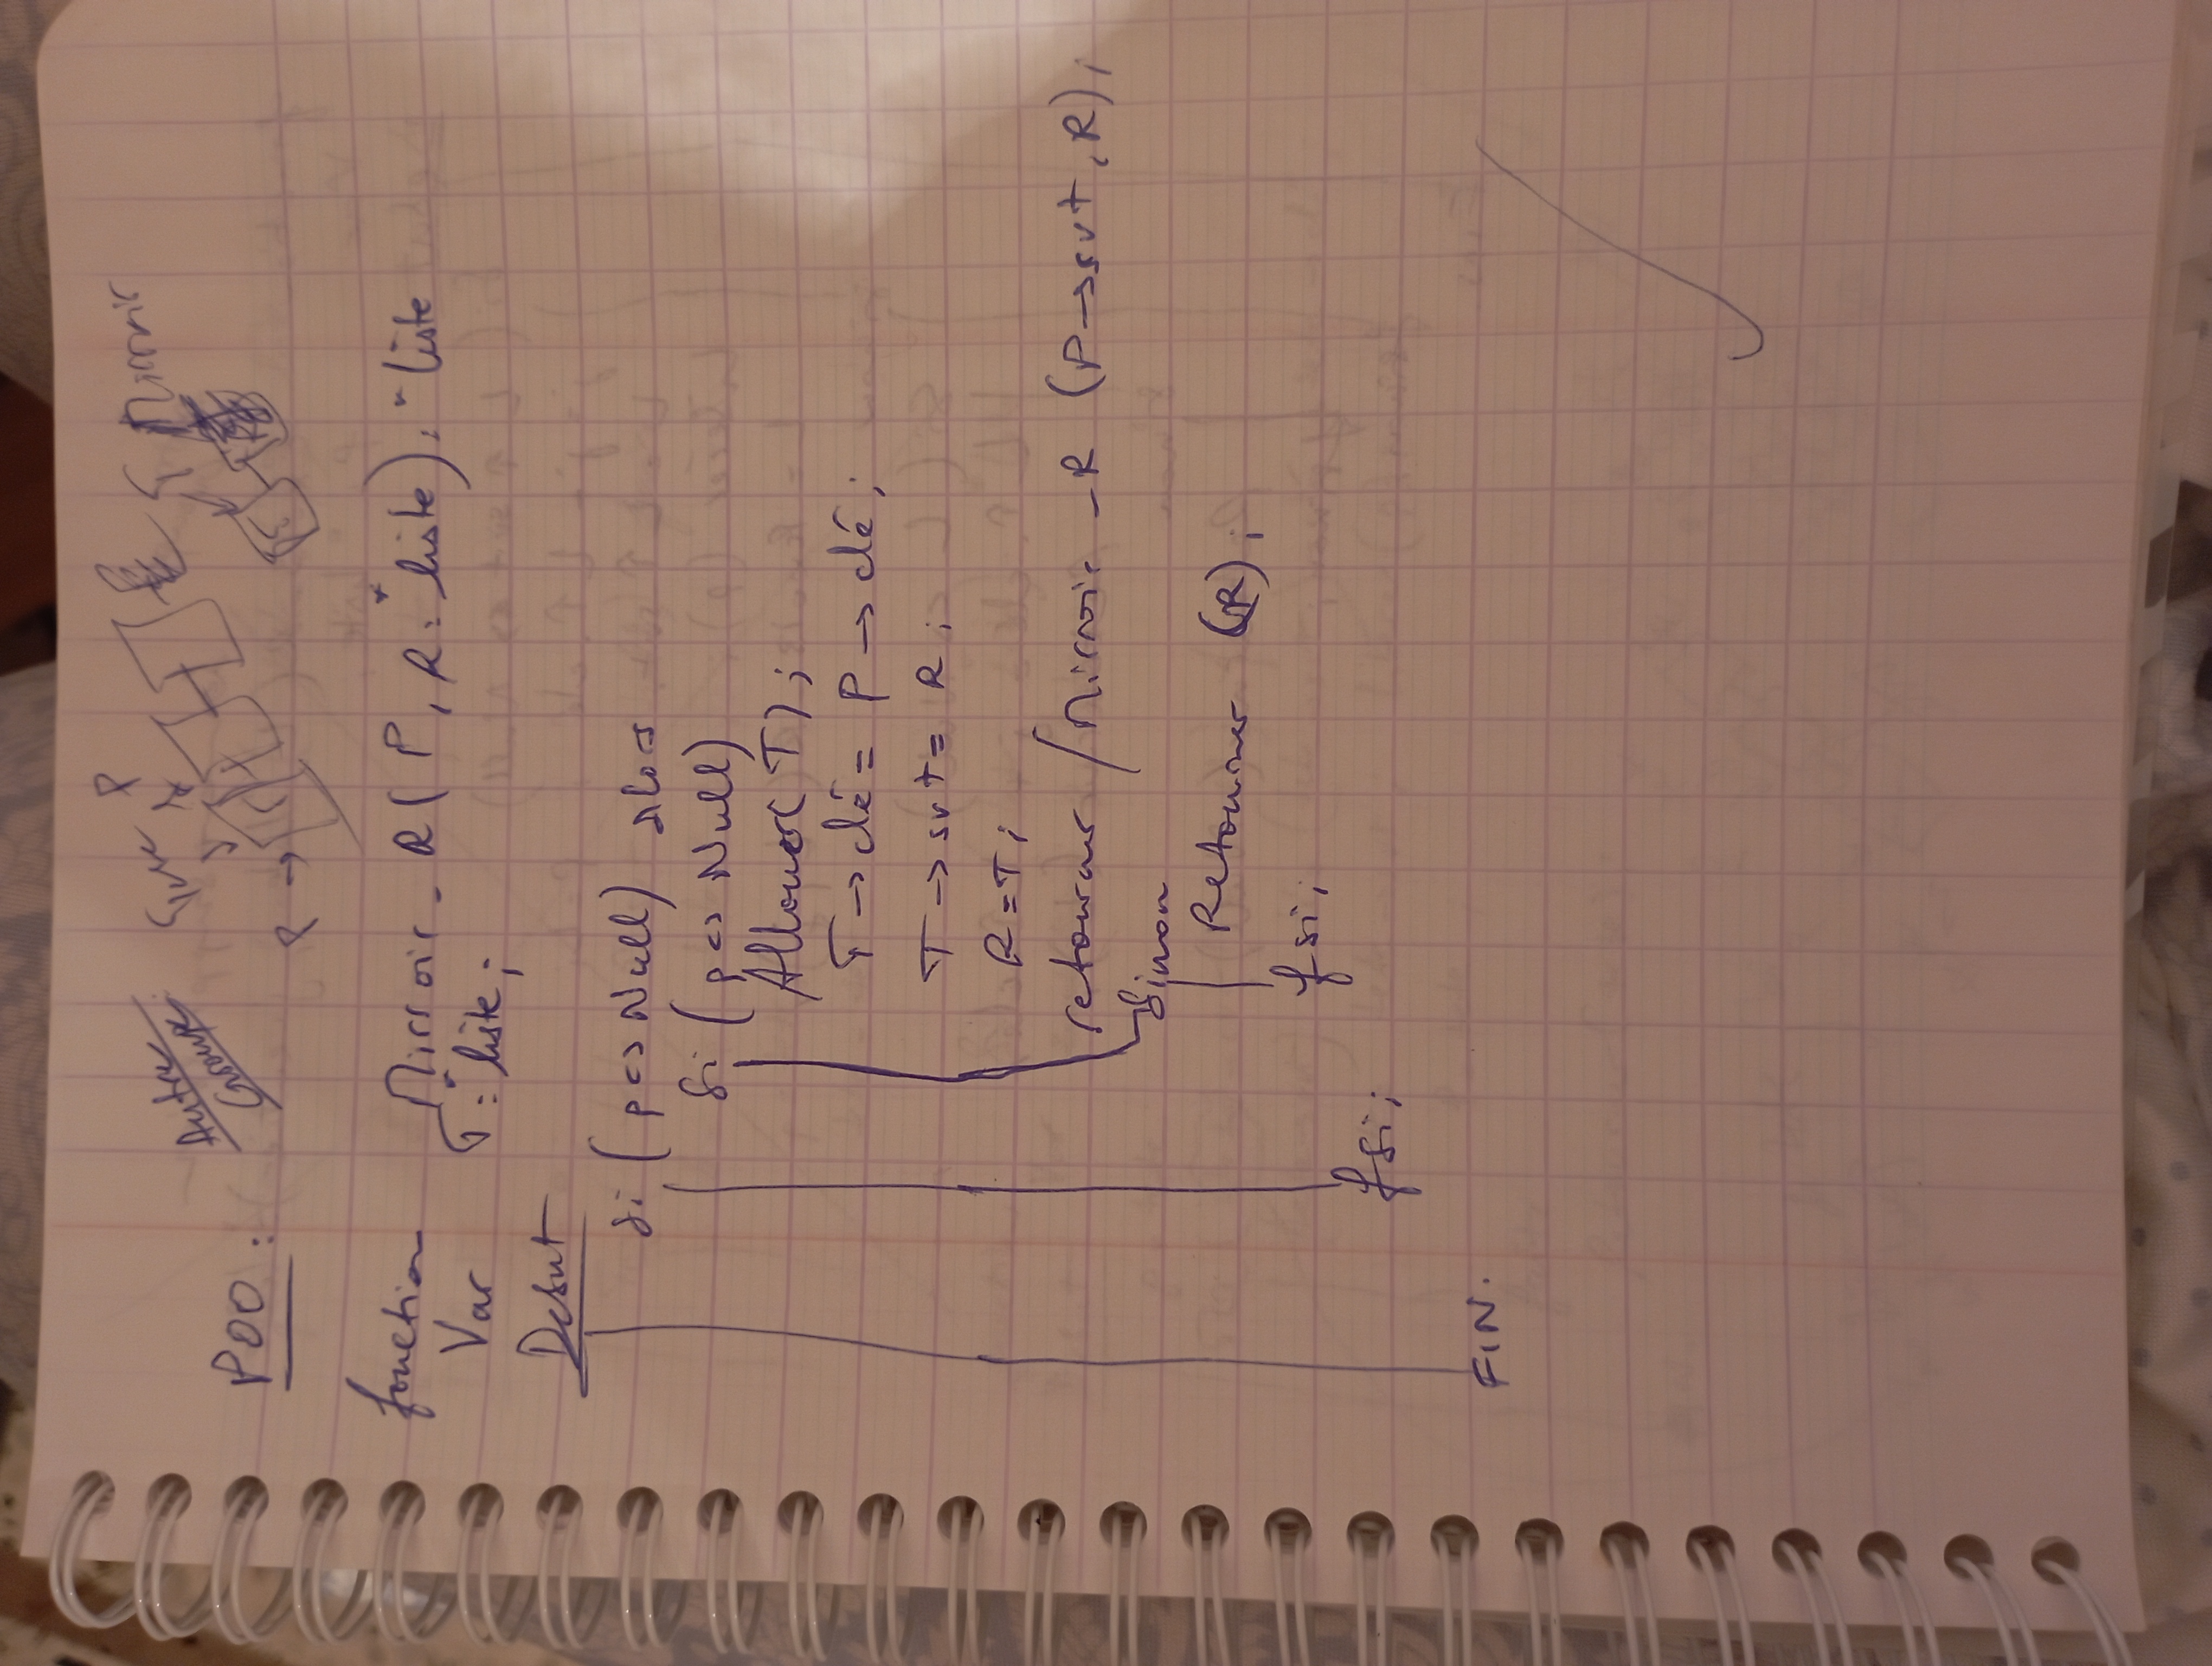 Autre Groupe
P
Mirroir
POO :
P →
fonction Mirroir-R (P, R : * liste) : * liste
Var T : * liste ;
Debut
si (p <> Null) alors
si (p <> Null)
Allouer(T) ;
T → clé = P → clé ;
T → svt = R ;
R = T ;
retourner Mirroir-R (P → svt, R) ;
sinon
Retourner (R) ;
fsi ;
fsi ;
FIN.